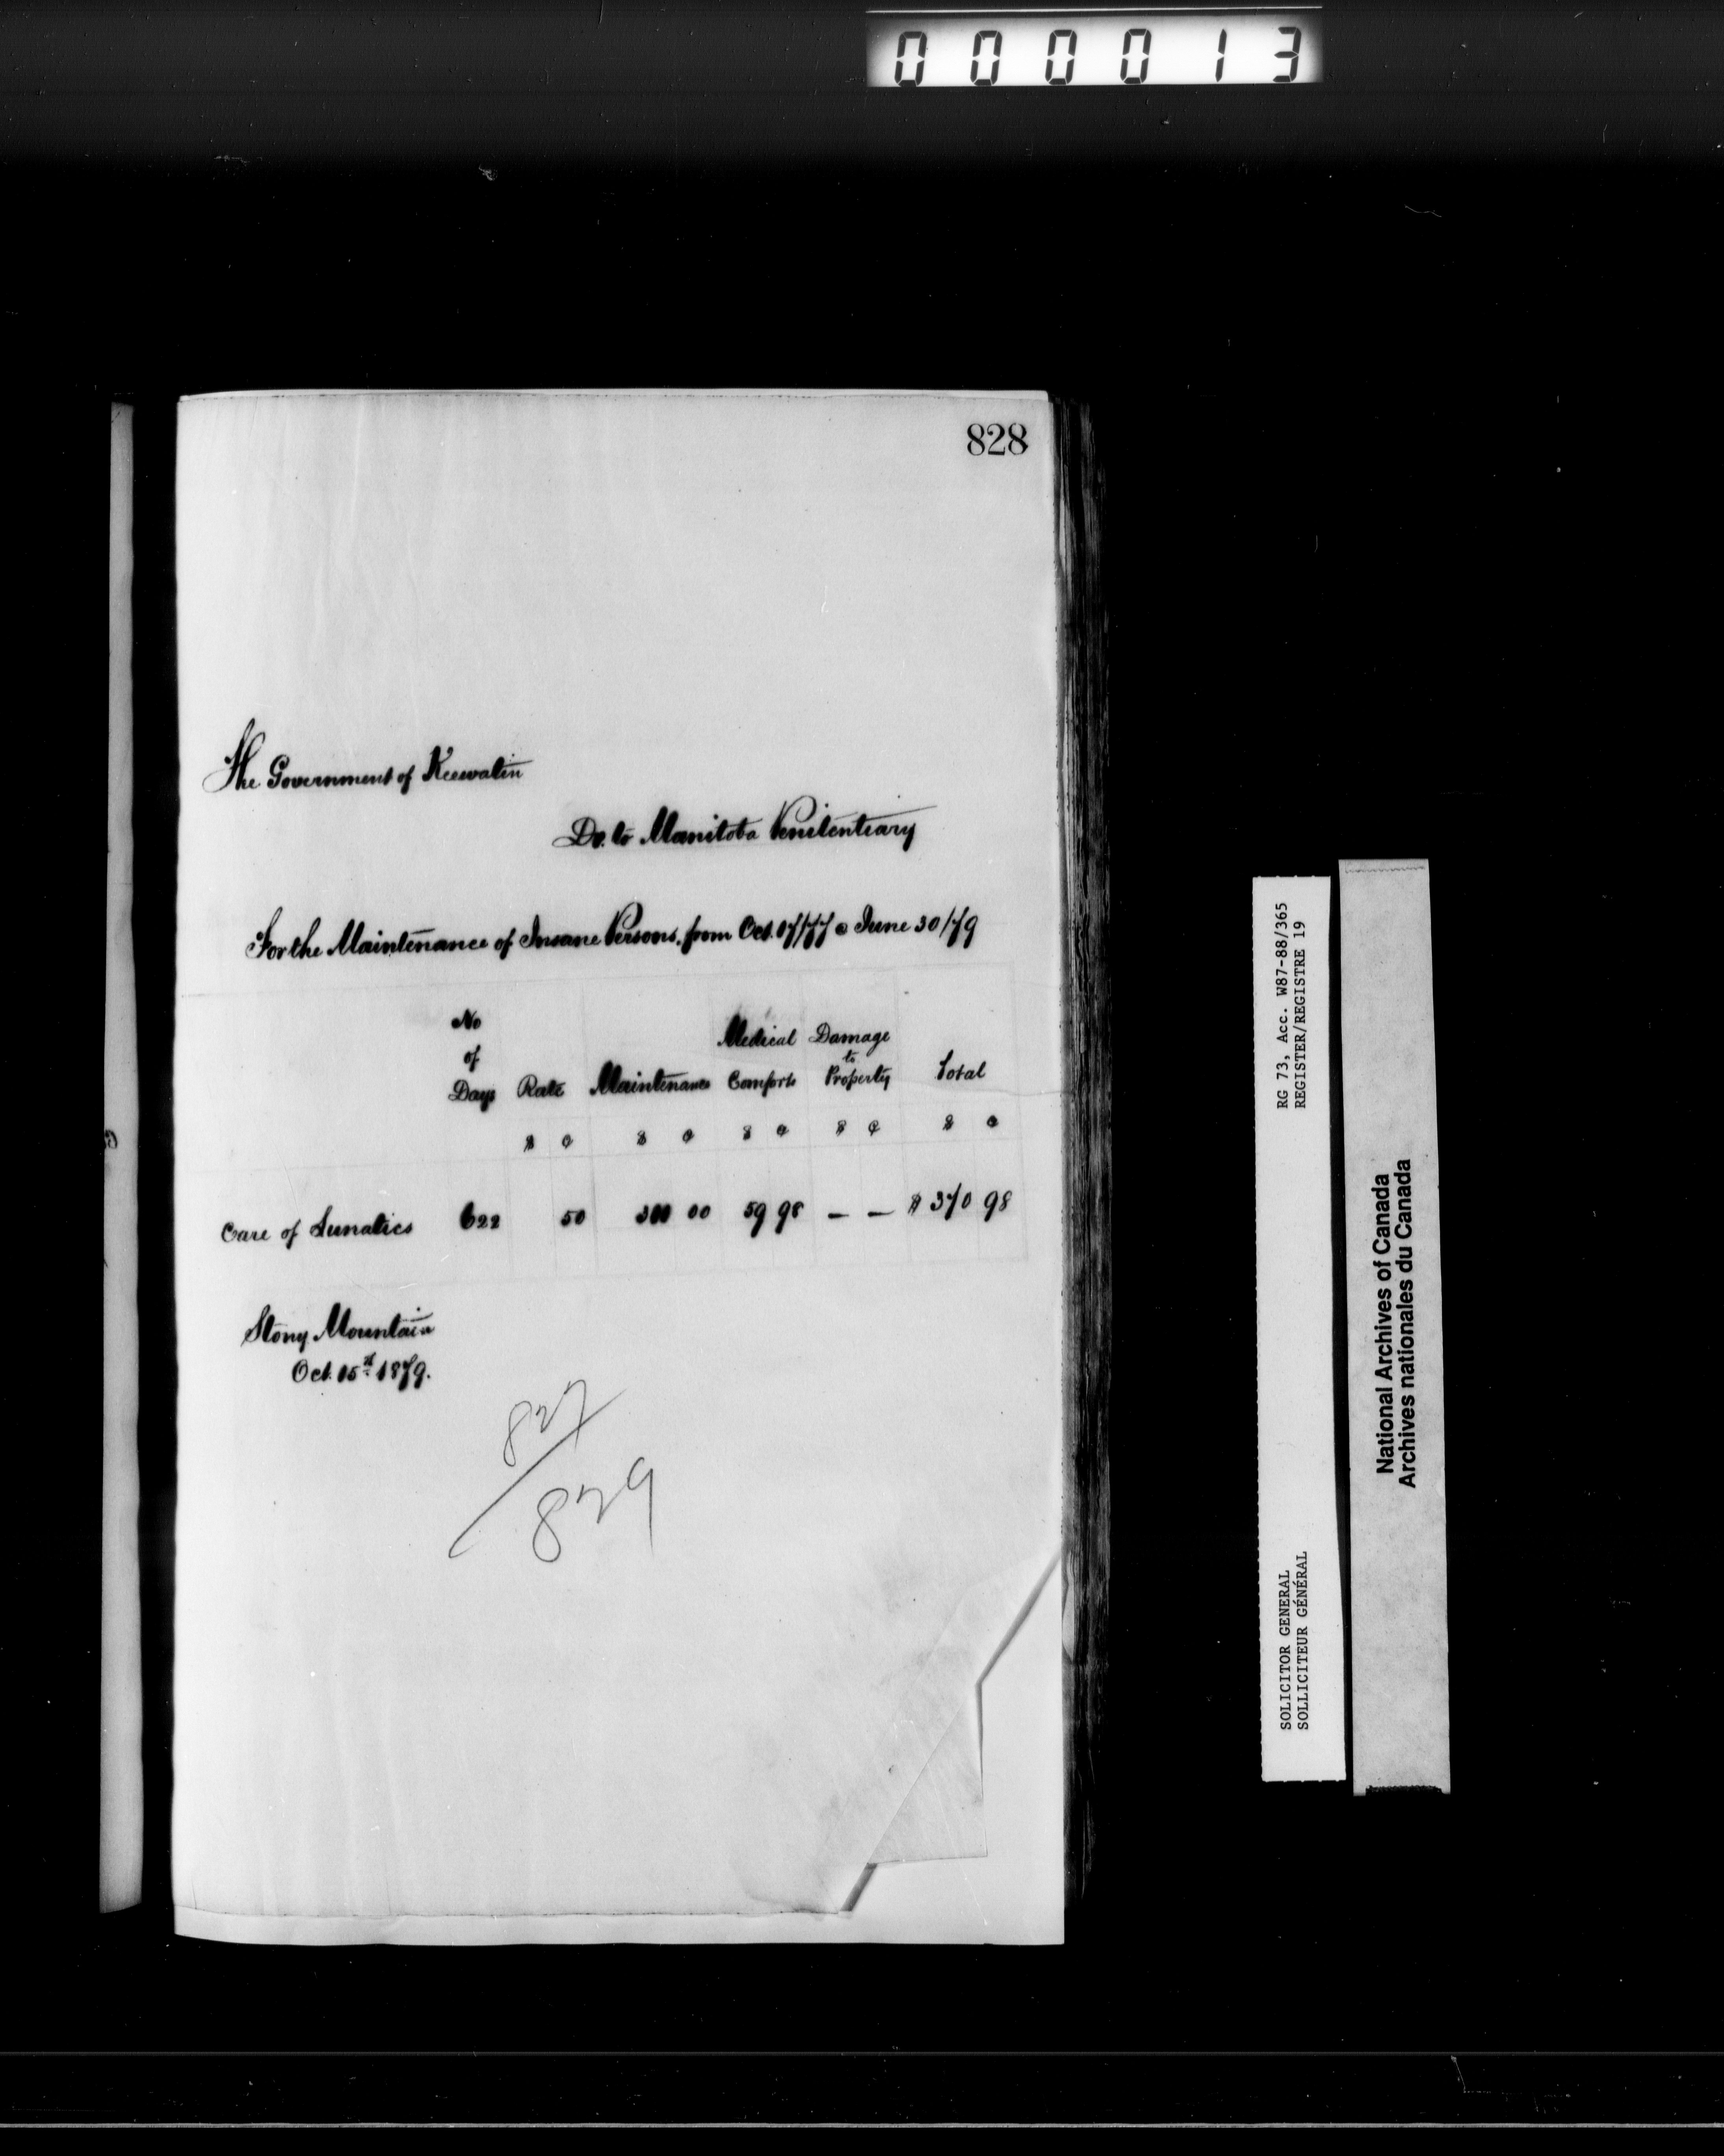 000013
828
The Government of Keewatin
Dr. to Manitoba Penitentiary
For the Maintenance of Insane Persons, from Oct. 17/77 @ June 30/79
No of Days Rate Maintenance Medical Comforts Damage to Property Total
$ c $ c $ c $ c $ c
Care of Lunatics 622 50 311 00 59 98 — — $ 370 98
Stony Mountain
Oct. 15th 1879.
827
829
RG 73, Acc. W87-88/365
REGISTER/REGISTRE 19
SOLICITOR GENERAL
SOLLICITEUR GÉNÉRAL
National Archives of Canada
Archives nationales du Canada